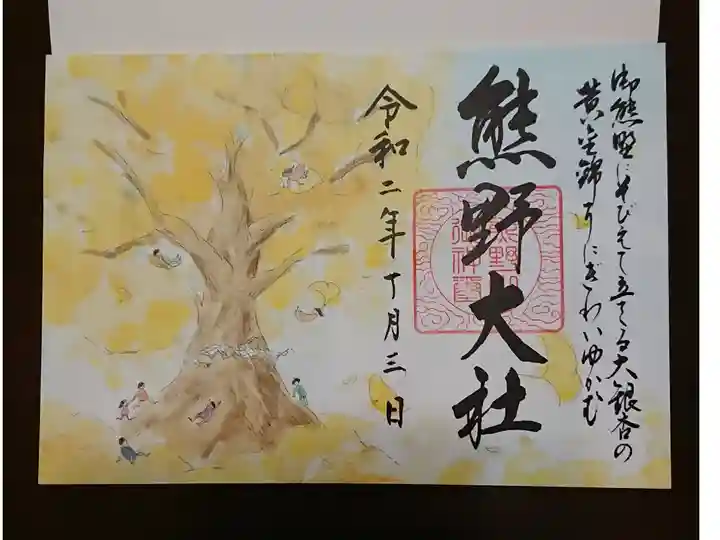 御熊野にそびえて立てる大銀杏の
黄金錦にぎわいゆかむ
熊野大社
令和二年十月三日